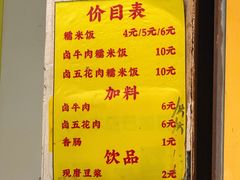 价目表
糯米饭 4元/5元/6元
卤牛肉糯米饭 10元
卤五花肉糯米饭 10元
加料
卤牛肉 6元
卤五花肉 6元
香肠 1元
饮品
现磨豆浆 2元